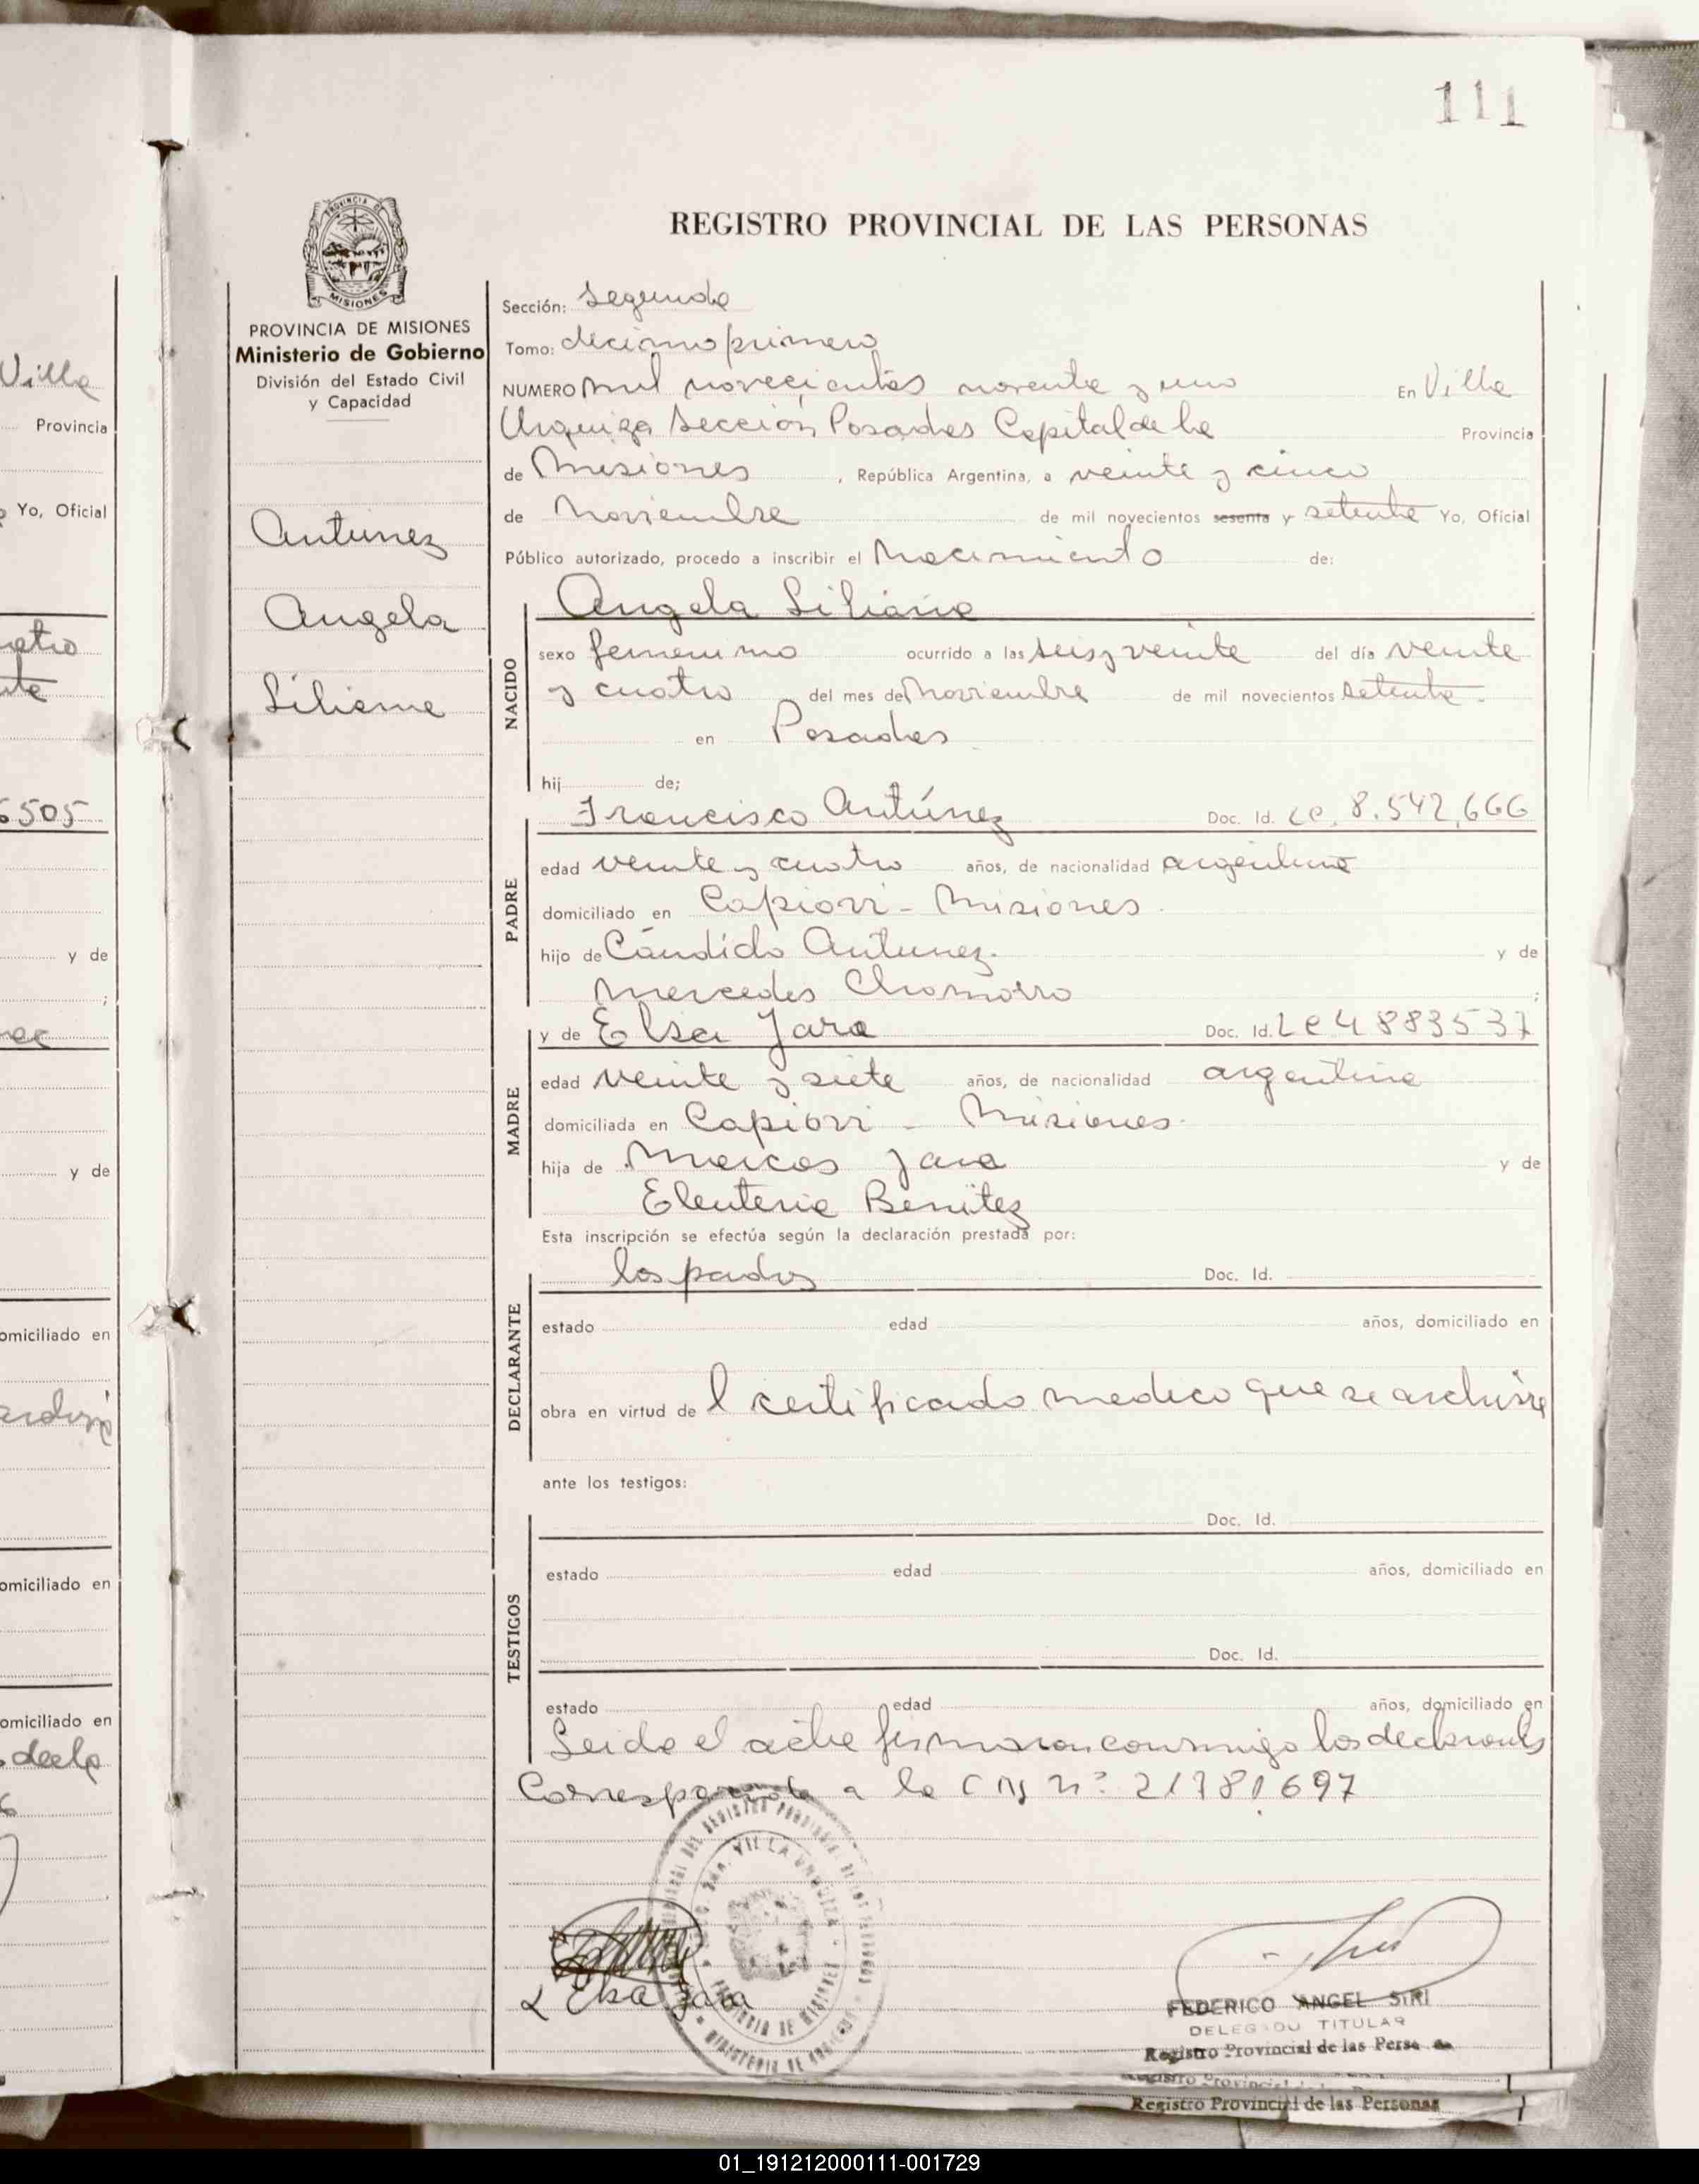 111
REGISTRO PROVINCIAL DE LAS PERSONAS
PROVINCIA DE MISIONES
Ministerio de Gobierno
División del Estado Civil
y Capacidad
Antunez
Angela
Liliana
Sección: Segunda
Tomo: decimo primero
NUMERO mil novecientos noventa y uno En Villa
Urquiza Sección Posadas Capital de la Provincia
de Misiones, República Argentina, a veinte y cinco
de Noviembre de mil novecientos sesenta y setenta Yo, Oficial
Público autorizado, procedo a inscribir el Nacimiento de:
NACIDO
Angela Liliana
sexo femenino ocurrido a las seis y veinte del día veinte
y cuatro del mes de Noviembre de mil novecientos setenta.
en Posadas
hij de;
PADRE
Francisco Antúnez Doc. Id. LE. 8.542.666
edad veinte y cuatro años, de nacionalidad argentina
domiciliado en Capiovi - Misiones.
hijo de Cándido Antunez. y de
Mercedes Chamorro ;
MADRE
y de Elsa Jara Doc. Id. LC 4883537
edad veinte y siete años, de nacionalidad argentina
domiciliada en Capiovi - Misiones.
hija de Marcos Jara y de
Eleuteria Benítez
Esta inscripción se efectúa según la declaración prestada por:
DECLARANTE
los padres Doc. Id.
estado edad años, domiciliado en
obra en virtud de l certificado medico que se archiva
ante los testigos:
TESTIGOS
Doc. Id.
estado edad años, domiciliado en
Doc. Id.
estado edad años, domiciliado en
Leida el acta firmaron conmigo los declarantes
Corresponde a la nº 21781697
Elsa Jara
FEDERICO ANGEL SIRI
DELEGADO TITULAR
Registro Provincial de las Personas
Registro Provincial de las Personas
Villa
Provincia
Yo, Oficial
6505
y de
;
y de
omiciliado en
omiciliado en
omiciliado en
01_191212000111-001729